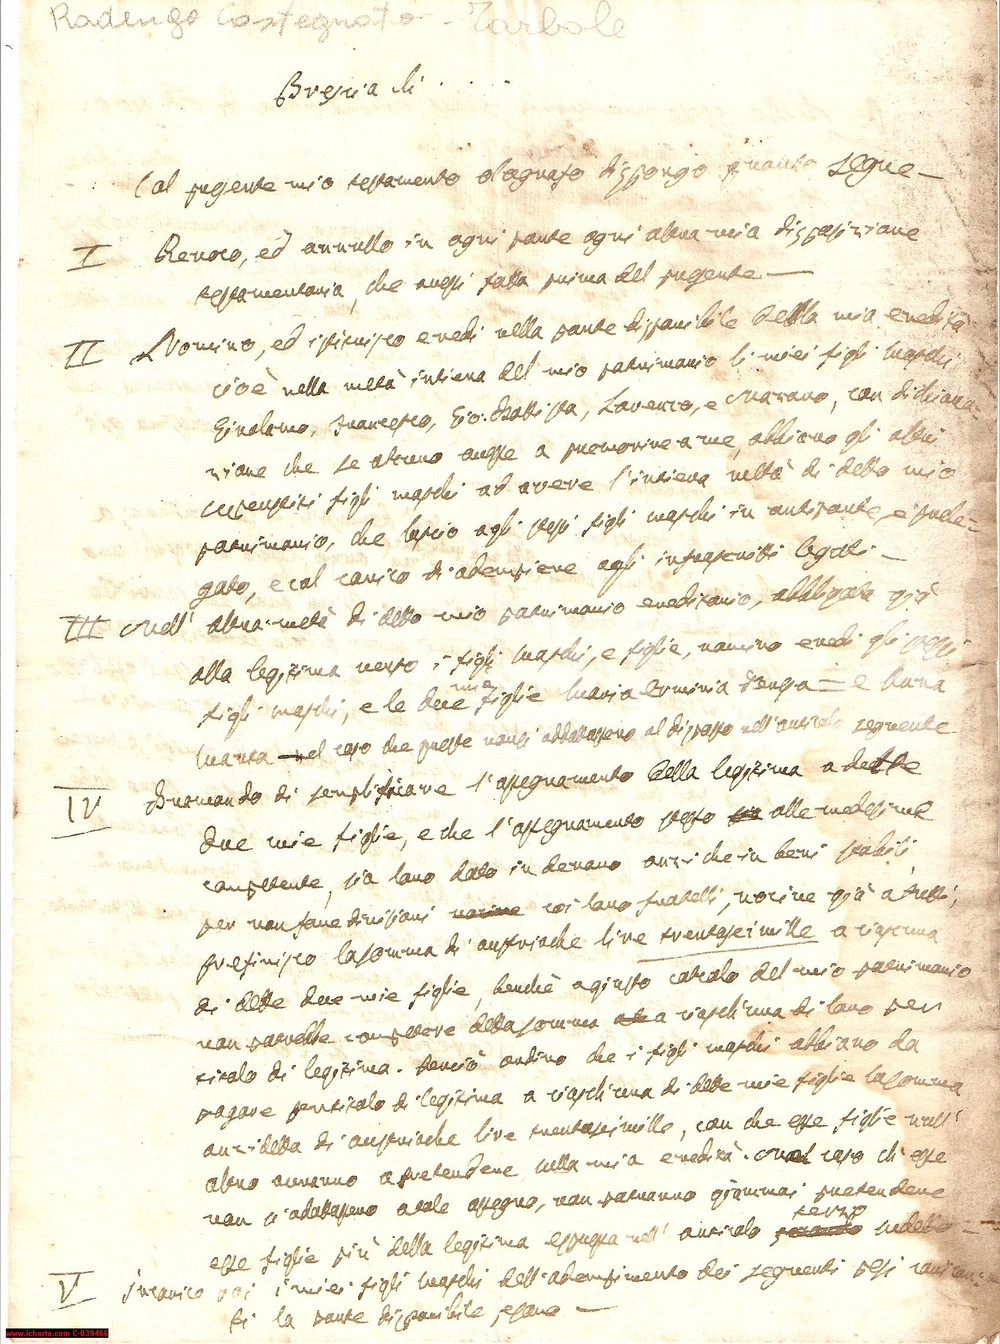 Radengo Castegnato - Torbole
Brescia li . . . .
Col presente mio testamento olografo dispongo quanto segue —
I Revoco, ed annullo in ogni parte ogni altra mia disposizione
testamentaria, che avessi fatta prima del presente —
II Nomino, ed istituisco eredi nella parte disponibile della mia eredità
cioè nella metà intiera del mio patrimonio li miei figli maschi
Girolamo, Francesco, Gio: Battista, Lorenzo, e Marano, con dichiara-
zione che se alcuno avesse a premorire a me, abbiano gli altri
superstiti figli maschi ad avere l'intiera metà di detto mio
patrimonio, che lascio agli stessi figli maschi in antiparte, e prele-
gato, e col carico di adempiere agli infrascritti legati —
III Nell' altra metà di detto mio patrimonio ereditario, obbligata già
alla legittima verso i figli maschi, e figlie, nomino eredi gli stessi
figli maschi, e le due mie figlie Maria Erminia = e Anna
Marta nel caso che queste non si adattassero al disposto nell'articolo seguente
IV Bramando di semplificare l'assegnamento della legittima a dette
due mie figlie, e che l'assegnamento stesso alle medesime
competente, sia loro dato in denaro anziche in beni stabili
per non fare divisioni coi loro fratelli, nocive già a tutti,
prefinisco la somma di austriache lire trentaseimille a ciascuna
di dette due mie figlie, benchè a giusto calcolo del mio patrimonio
non potrebbe competere detta somma a ciascheduna di loro per
titolo di legittima. Perciò ordino che i figli maschi abbiano da
pagare per titolo di legittima a ciascheduna di dette mie figlie la somma
anzidetta di austriache lire trentaseimille, con che esse figlie null'
altro avranno a pretendere nella mia eredità. Nel caso ch'esse
non s'adattassero a tale assegno, non potranno giammai pretendere
esse figlie più della legittima espressa nell' articolo terzo sudetto —
V Incarico poi i miei figli maschi dell'adempimento dei seguenti pesi
ti la parte disponibile, e sono —
www.icharta.com C-039466